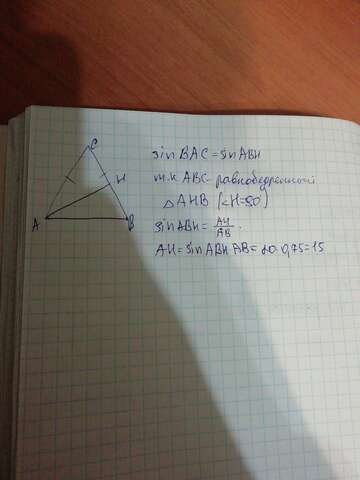 C
H
A
B
sin BAC = sin ABH
т.к ABC - равнобедренный
△ AHB (∠H=90)
sin ABH = AH/AB.
AH = sin ABH AB = 20 · 0,75 = 15